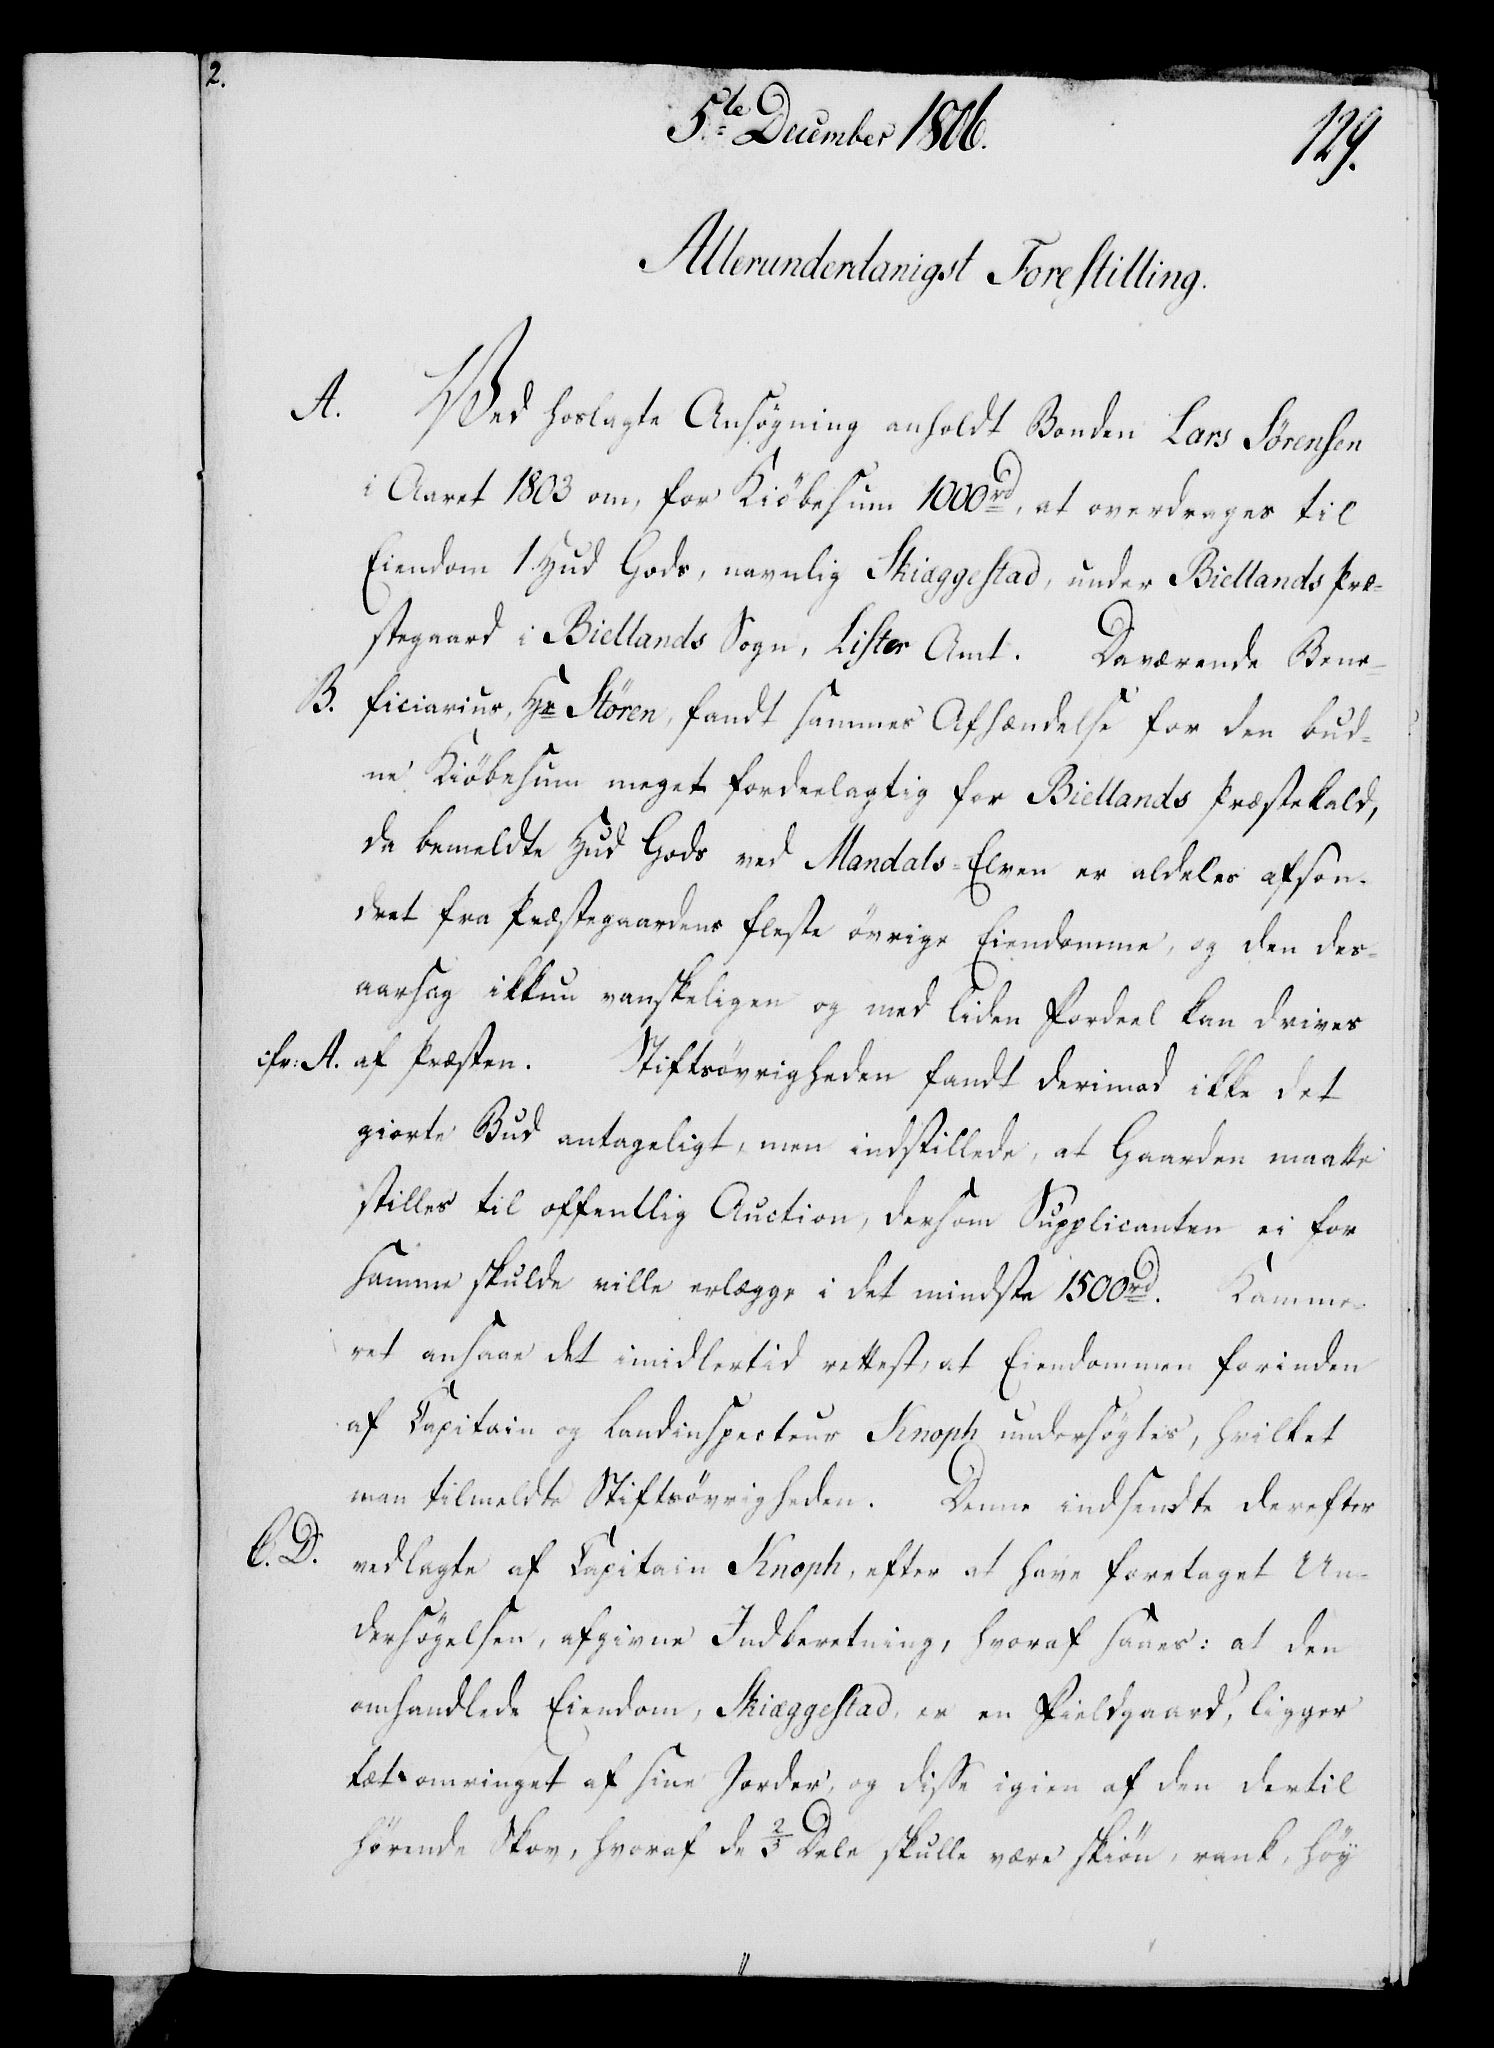 2.
5te December 1806.
129.
Allerunderdanigst Forestilling.
A. Ved hoslagte Ansøgning anholdt Bonden Lars Sörensen
i Aaret 1803 om, for Kiöbesum 1000rd, at overdrages til
Eiendom 1 Hud Gods, navnlig Skiæggestad, under Biellands Præ-
stegaard i Biellands Sogn, Lister Amt. Daværende Bene-
B. ficiarius, Hr Stören, fandt sammes Afhændelse for den bud-
ne Kiöbesum meget fordeelagtig for Biellands Præstekald,
da bemeldte Hud Gods ved Mandals-Elven er aldeles afson-
dret fra Præstegaardens fleste övrige Eiendomme, og den des-
aarsag ikkun vanskeligen og med liden Fordeel kan drives
cfr: A. af Præsten. Stiftsövrigheden fandt derimod ikke det
giorte Bud antageligt, men indstillede, at Gaarden maatte
stilles til offentlig Auction, dersom Supplicanten ei for
samme skulde ville erlægge i det mindste 1500rd. Kamme-
ret ansaae det imidlertid rettest, at Eiendommen forinden
af Capitain og Landinspecteur Knoph undersögtes, hvilket
man tilmeldte Stiftsövrigheden. Denne indsendte derefter
C. D. vedlagte af Capitain Knoph, efter at have foretaget Un-
dersögelsen, afgivne Indberetning, hvoraf sees: at den
omhandlede Eiendom, Skiæggestad, er en Fieldgaard, ligger
tæt omringet af sine Jorder, og disse igien af den dertil
hörende Skov, hvoraf de 2/3 Dele skulle være skiön, rank, höy